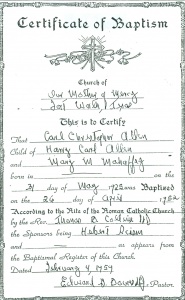 Certificate of Baptism
Church of
Our Mother of Mercy
Fort Worth, Texas
This is to Certify
That Carl Christopher Allen
Child of Harry Carl Allen
and Mary M Mahaffey
born in on the
21 day of May 19 was Baptized
on the 26 day of April 195
According to the Rite of the Roman Catholic Church
by the Rev. Thomas
the Sponsors being Hubert
and as appears from
the Baptismal Register of this Church.
Dated February 4 1954
Edward D. Pastor.